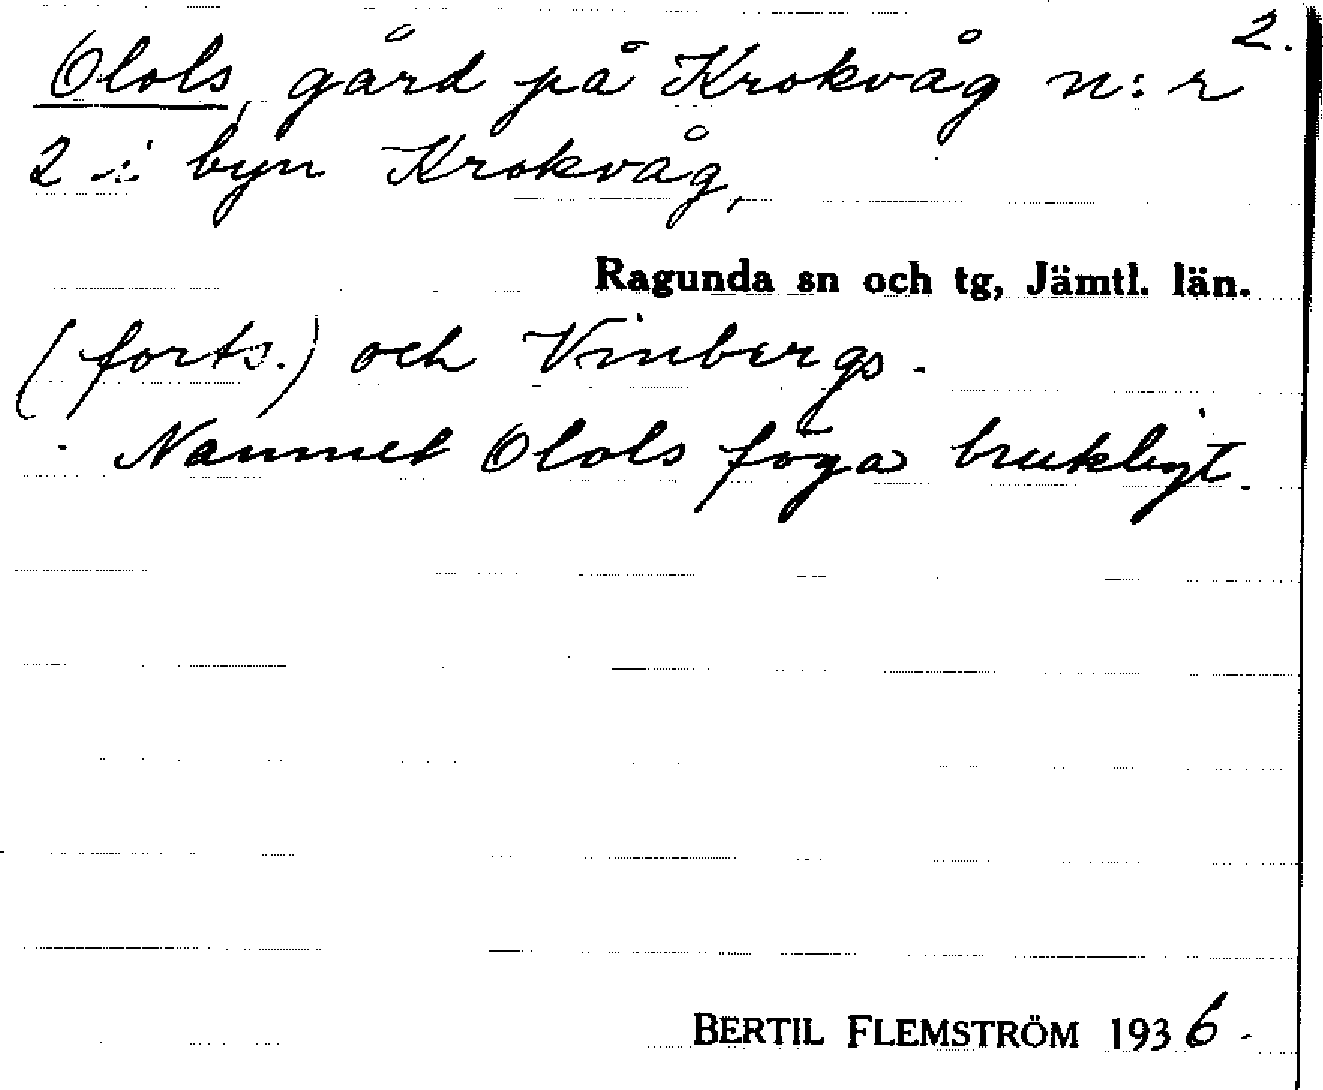 2.
Olols, gård på Krokvåg n:r
2 i byn Krokvåg,
Ragunda sn och tg, Jämtl. län.
(forts.) och Vinbergs.
Namnet Olols föga brukligt.
BERTIL FLEMSTRÖM 1936.